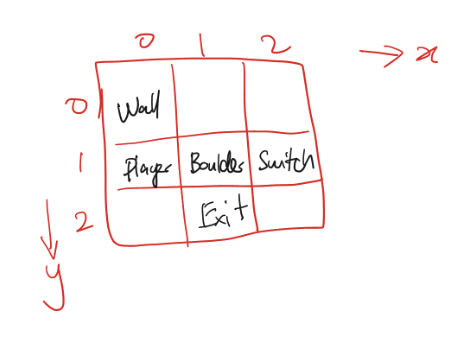 0 1 2 → x
0 Wall
1 Player Boulder Switch
2 Exit
y